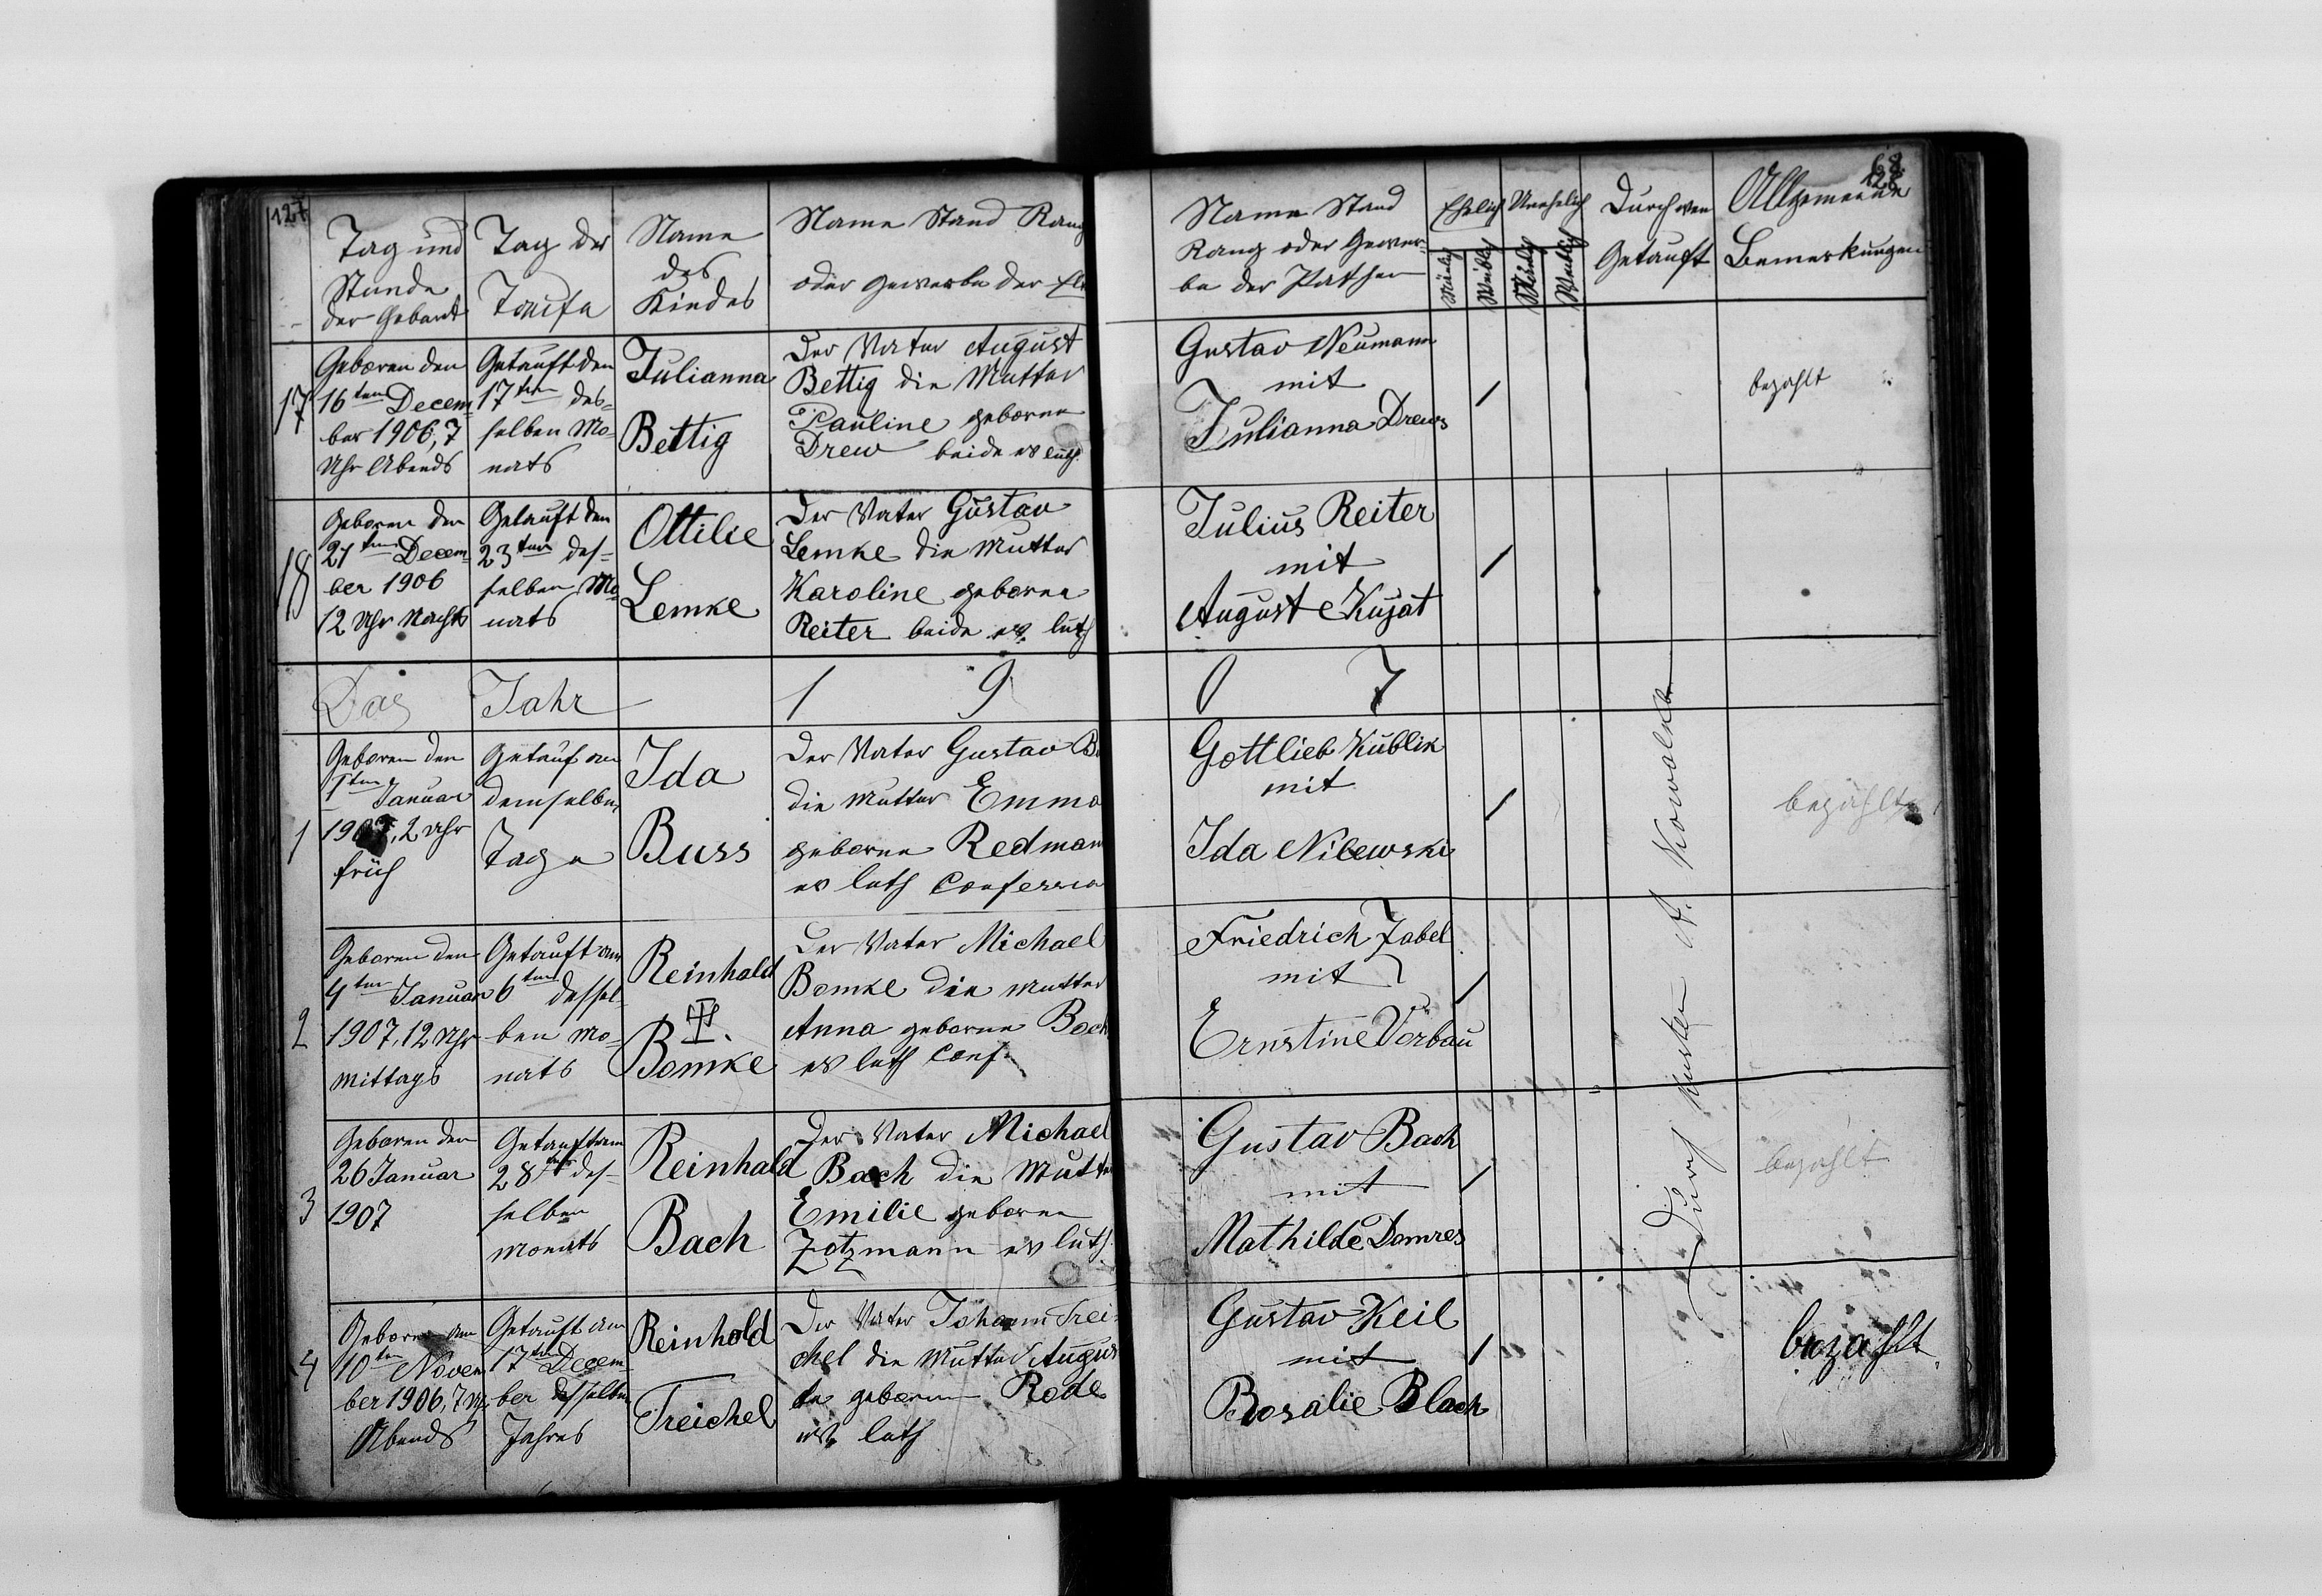 127
68
128
Tag und Stunde der Geburt
Tag der Taufe
Name des Kindes
Name Stand Rang oder Gewerbe der El
Name Stand Rang oder Gewerbe der Pathen
Ehelich
Unehelich
Mänlich
Weiblich
Mänlich
Weiblich
Durch wen Getauft
Allgemeine Bemerkungen
17
Geboren den
16ten Decem-
ber 1906, 7
Uhr Abends
Getauft den
17ten des-
selben Mo-
nats
Julianna
Bettig
Der Vater August
Bettig die Mutter
Pauline geborene
Drew beide ev luth.
Gustav Neumann
mit
Julianna Drews
bezahlt
18
Geboren den
21ten Decem-
ber 1906
12 Uhr Nachts
Getauft den
23ten des-
selben Mo-
nats
Ottilie
Lemke
Der Vater Gustav
Lemke die Mutter
Karoline geborene
Reiter beide ev. luth
Julius Reiter
mit
Auguste Kujat
Das Jahr 1907
1
Geboren den
1ten Januar
1907, 2 Uhr
früh
Getauf am
demselben
Tage
Ida
Buss
Der Vater Gustav Bu
die Mutter Emma
geborene Redman
ev luth Confessio
Gottlieb Kublik
mit
Ida Nilewski
bezahlt
2
Geboren den
4ten Januar
1907, 12 Uhr
Mittags
Getauft am
6ten dessel-
ben Mo-
nats
Reinhald
Bomke
Der Vater Michael
Bomke die Mutter
Anna geborene Boch
ev luth Conf.
Friedrich Zabel
mit
Ernstine Verbau
3
Geboren den
26 Januar
1907
Getauft am
28ten des-
selben
Monats
Reinhald
Bach
Der Vater Michael
Bach die Mutte
Emilie geborene
Zotzmann ev luth.
Gustav Bach
mit
Mathilde Domres
bezahlt
4
Geboren am
10ten Novem
ber 1906, 7 Uhr
Abends
Getauft am
17ten Decem-
ber desselben
Jahres
Reinhold
Treichel
Der Vater Johann Trei-
chel die Mutter Augus
te geborene Rode
ev. luth
Gustav Keil
mit
Rosalie Blach
bezahlt
Durch Küster A.